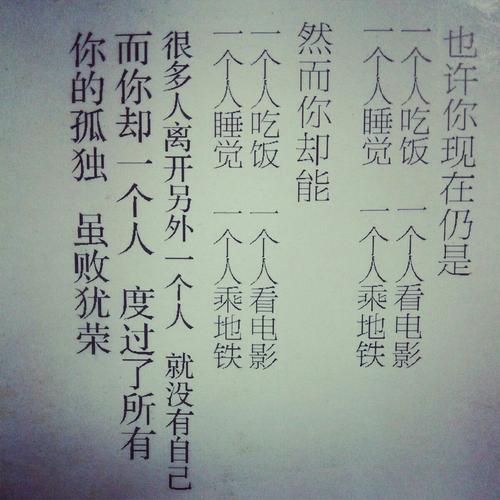 也许你现在仍是
一个人吃饭 一个人看电影
一个人睡觉 一个人乘地铁
然而你却能
一个人吃饭 一个人看电影
一个人睡觉 一个人乘地铁
很多人离开另外一个人 就没有自己
而你却一个人 度过了所有
你的孤独 虽败犹荣